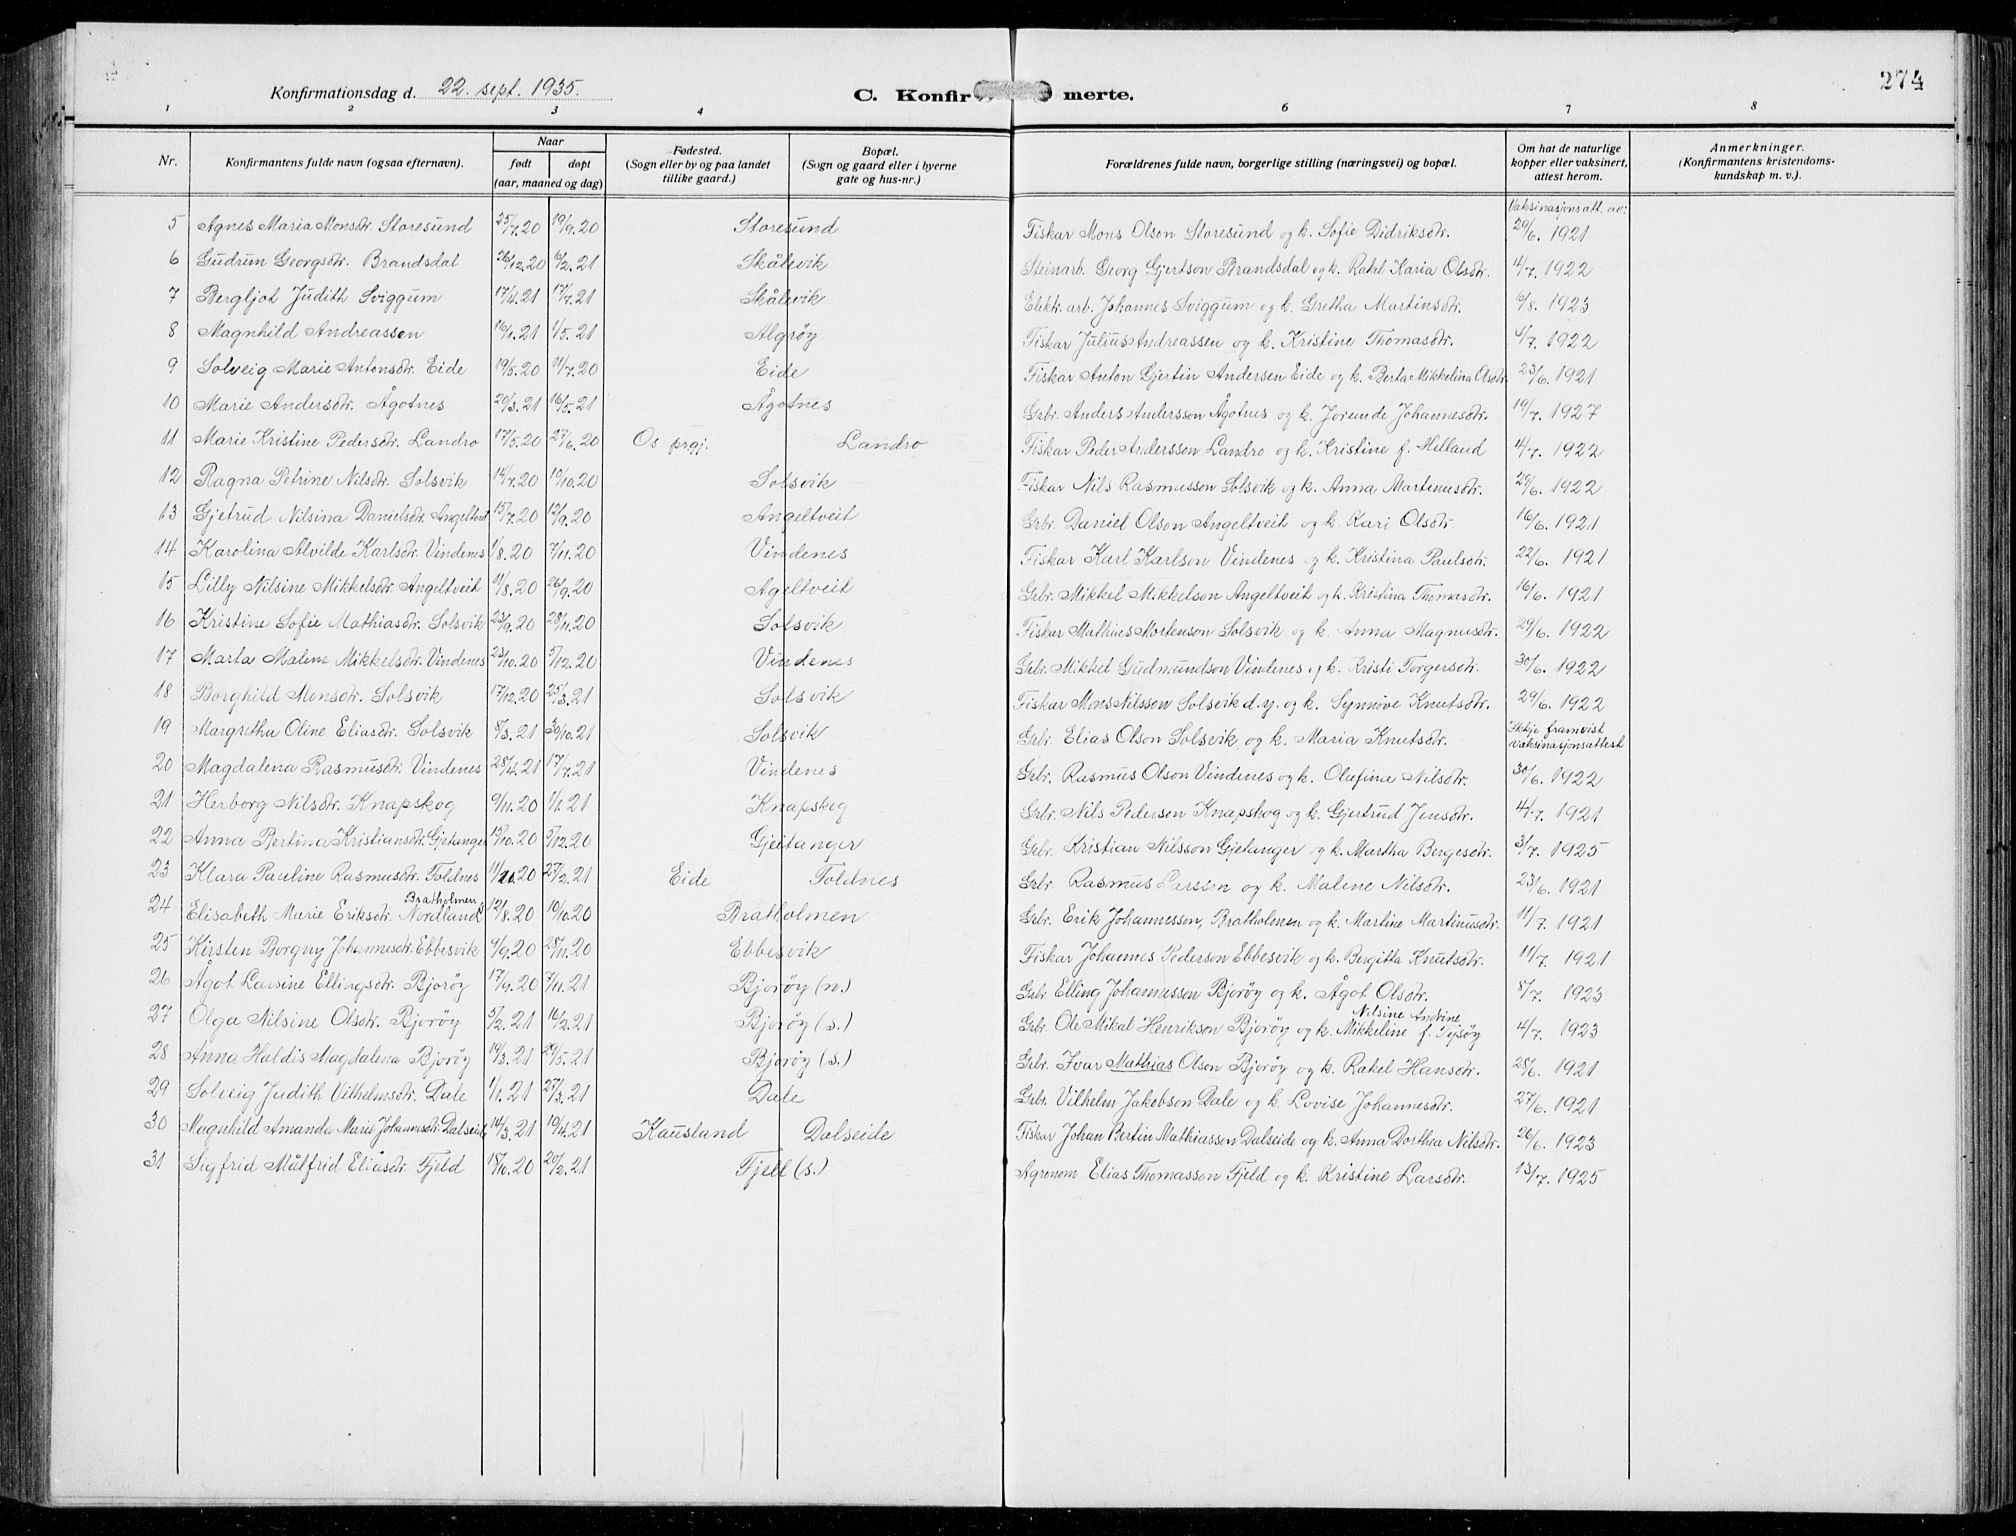 274
Konfirmationsdag d. 22. sept. 1935.
C. Konfir merte.
1 2 3 4 6 7 8
Nr. Konfirmantens fulde navn (ogsaa efternavn). Naar født døpt (aar, maaned og dag) Fødested. (Sogn eller by og paa landet tillike gaard.) Bopæl. (Sogn og gaard eller i byerne gate og hus-nr.) Forældrenes fulde navn, borgerlige stilling (næringsvei) og bopæl. Om hat de naturlige kopper eller vaksinert, attest herom. Anmerkninger. (Konfirmantens kristendoms-kundskap m. v.).
Vaksinasjonsatt. av:
5 Agnes Maria Monsdtr. Storesund 25/7.20 19/9.20 Storesund Fiskar Mons Olson Storesund og k. Sofie Didriksdtr. 29/6. 1921
6 Gudrun Georgsdtr. Brandsdal 26/12.20 6/2.21 Skålevik Steinarb. Georg Gjertson Brandsdal og k. Rakel Karia Olsdtr. 4/7. 1922
7 Bergljot Judith Sviggum 17/4.21 17/7.21 Skålevik Elektr. arb. Johannes Sviggum og k. Gretha Martinsdtr. 6/8. 1923
8 Magnhild Andreassen 16/1.21 1/5.21 Algrøy Fiskar Julius Andreassen og k. Kristine Thomasdtr. 4/7. 1922
9 Solveig Marie Antonsdtr. Eide 19/5.20 11/7.20 Eide Fiskar Anton Gjertin Andersen Eide og k. Berta Mikkelina Olsdtr. 23/6. 1921
10 Marie Andersdtr. Ågotnes 20/3.21 16/5.21 Ågotnes Grbr. Anders Andersson Ågotnes og k. Jorunde Johannesdtr. 19/7. 1927
11 Marie Kristine Pedersdtr. Landro 17/5.20 27/6.20 Os prgj. Landro Fiskar Peder Andersson Landro og k. Kristine f. Helland 4/7. 1922
12 Ragna Petrine Nilsdtr. Solsvik 14/7.20 10/10.20 Solsvik Fiskar Nils Rasmusson Solsvik og k. Anna Martinusdtr. 29/6. 1922
13 Gjetrud Nilsina Danielsdtr. Angeltveit 15/7.20 12/9.20 Angeltveit Grbr. Daniel Olson Angeltveit og k. Kari Olsdtr. 16/6. 1921
14 Karolina Alvilde Karlsdtr. Vindenes 1/8.20 7/11.20 Vindenes Fiskar Karl Karlson Vindenes og k. Kristina Paulsdtr. 22/6. 1921
15 Lilly Nilsine Mikkelsdtr. Angeltveit 11/8.20 26/9.20 Ageltveit Grbr. Mikkel Mikkelson Angeltveit og k. Kristina Thomasdtr. 16/6. 1921
16 Kristine Sofie Mathiasdtr. Solsvik 23/9.20 28/11.20 Solsvik Fiskar Mathias Mortenson Solsvik og k. Anna Magnusdtr. 29/6. 1922
17 Marta Malene Mikkelsdtr. Vindenes 23/10.20 5/12.20 Vindenes Grbr. Mikkel Gudmundson Vindenes og k. Kristi Torgersdtr. 30/6. 1922
18 Borghild Monsdtr. Solsvik 17/12.20 25/3.21 Solsvik Fiskar Mons Nilsson Solsvik d.y. og k. Synnøve Knutsdtr. 29/6. 1922
19 Margretha Oline Eliasdtr. Solsvik 8/3.21 30/10.21 Solsvik Grbr. Elias Olson Solsvik og k. Maria Knutsdtr. Ikkje framvist vaksinasjonsattest
20 Magdalena Rasmusdtr. Vindenes 28/4.21 17/7.21 Vindenes Grbr. Rasmus Olson Vindenes og k. Olafina Nilsdtr. 30/6. 1922
21 Herborg Nilsdtr. Knapskog 9/11.20 1/1.21 Knapskog Grbr. Nils Pederson Knapskog og k. Gjertrud Jensdtr. 4/7. 1921
22 Anna Bertina Kristiansdtr. Gjetanger 15/10.20 5/12.20 Gjeitanger Grbr. Kristian Nilsson Gjetanger og k. Martha Bergesdtr. 3/7. 1925
23 Klara Pauline Rasmusdtr. Toldnes 20 27/2.21 Eide Toldnes Grbr. Rasmus Larssen og k. Malene Nilsdtr. 23/6. 1921
24 Elisabeth Marie Eriksdtr. Bratholmen Nordland 12/8.20 10/10.20 Bratholmen Grbr. Erik Johannesson, Bratholmen og k. Martine Martinusdtr. 11/7. 1921
25 Kirsten Borgny Johannesdtr. Ebbesvik 9/9.20 28/11.20 Ebbesvik Fiskar Johannes Pederson Ebbesvik og k. Bergitta Knutsdtr. 11/7. 1921
26 Ågot Larsine Ellingsdtr. Bjorøy 17/9.20 7/11.21 Bjorøy (n.) Grbr. Elling Johannesson Bjorøy og k. Ågot Olsdtr. 8/7. 1923
27 Olga Nilsine Olsdtr. Bjorøy 5/2.21 16/2.21 Bjorøy (s.) Grbr. Ole Mikal Henrikson Bjorøy og k. Nilsine Andrine Mikkeline f. Tyssøy 4/7. 1923
28 Anna Haldis Magdalena Bjorøy 19/3.21 29/5.21 Bjorøy (s.) Grbr. Ivar Mathias Olson Bjorøy og k. Rakel Hansdtr. 28/6. 1921
29 Solveig Judith Vilhelmsdtr. Dale 1/1.21 27/3.21 Dale Grbr. Vilhelm Jakobson Dale og k. Lovise Johannesdtr. 27/6. 1921
30 Magnhild Amanda Marie Johannsdtr. Dalseide 14/3.21 19/4.21 Kausland Dalseide Fiskar Johan Bertin Mathiasson Dalseide og k. Anna Dorthea Nilsdtr. 26/6. 1923
31 Sigfrid Målfrid Eliasdtr. Fjeld 18/10.20 20/2.21 Fjell (s.) Agronom Elias Thomasson Fjeld og k. Kristine Larsdtr. 13/7. 1925